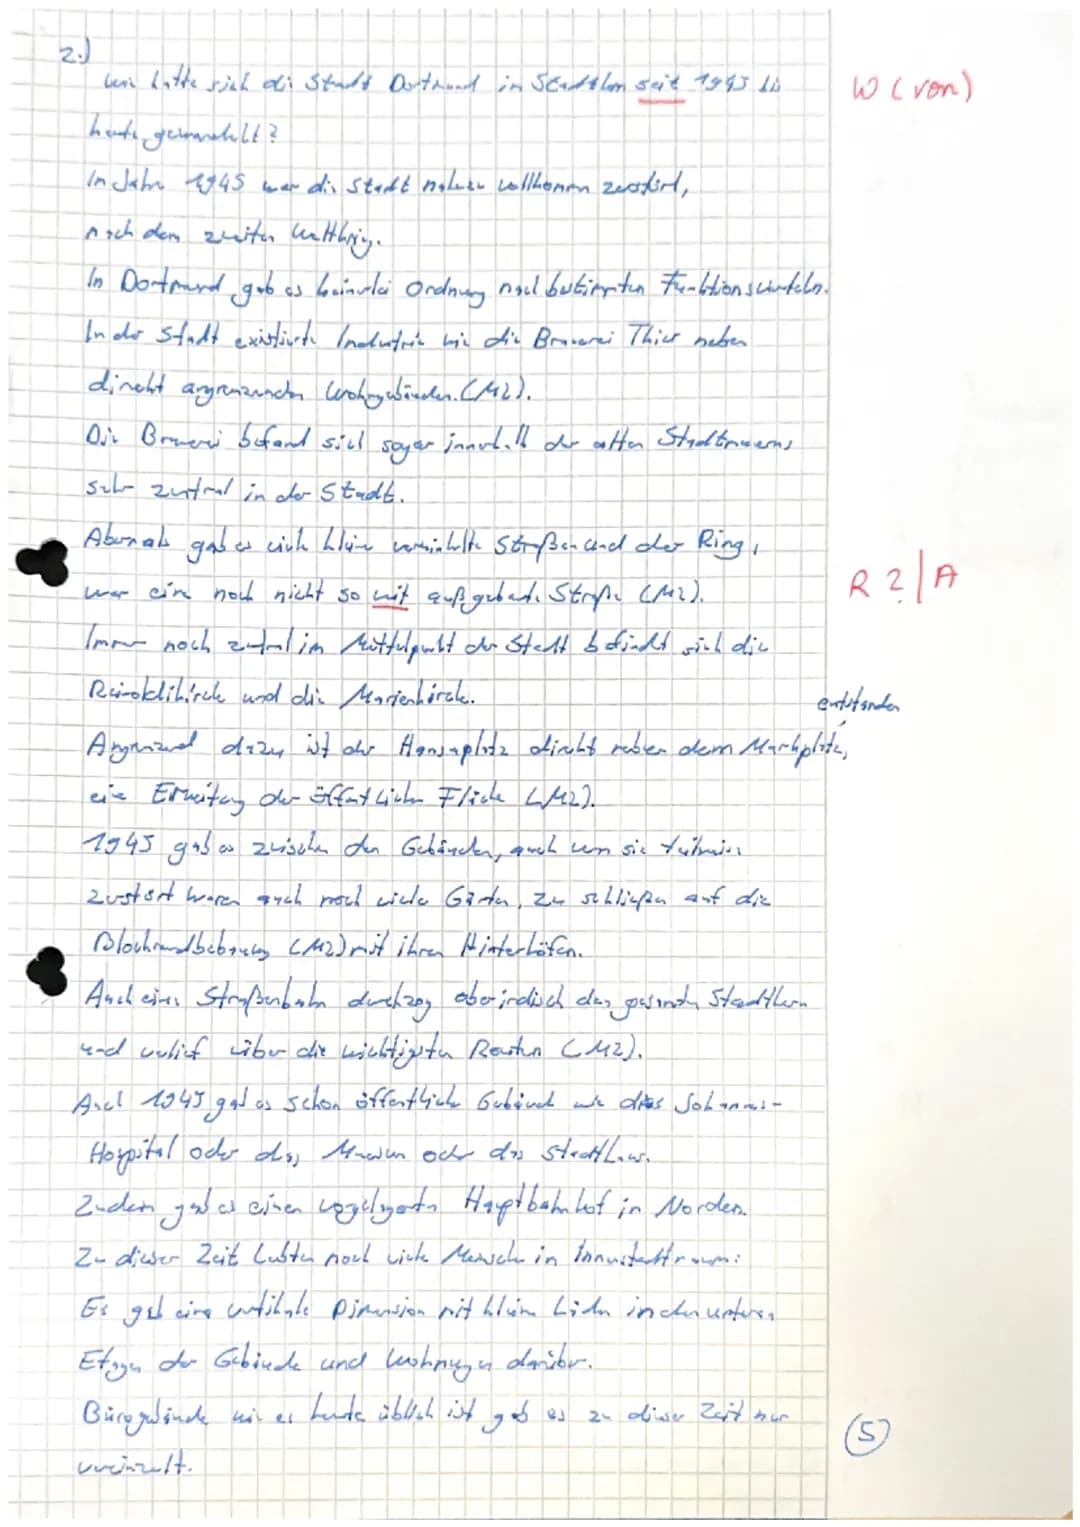 2.)
Wie hatte sich die Stadt Dortmund in Stadtkern seit 1945 bis W (von)
heute gewandelt?
In Jahr 1945 war die Stadt nahezu vollkommen zerstört,
nach dem zweiten Weltkrieg.
In Dortmund gab es keinerlei Ordnung nach bestimmten Funktionsvierteln.
In der Stadt existierte Industrie wie die Brauerei Thier neben
direkt angrenzenden Wohngebäuden. (M2).
Die Brauerei befand sich sogar innerhalb der alten Stadtmauern,
sehr zentral in der Stadt.
gab es viele kleine Straßen und der Ring,
war eine noch nicht so weit außgebaute Straße (M2). R ?/A
Immer noch zentral im Mittelpunkt der Stadt befindet sich die
Reinoldikirche und die Marienkirche.
entstanden
Angrenzend dazu ist der Hansaplatz direkt neben dem Markplatz,
eine Erweiterung der öffentlichen Fläche (M2).
1945 gab es zwischen den Gebäuden, auch wenn sie teilweise
zerstört waren auch noch viele Gärten, zu schließen auf die
Blockrandbebauung (M2) mit ihren Hinterhöfen.
Auch eine Straßenbahn durchzog oberirdisch den gesamten Stadtkern
und verlief über die wichtigsten Routen (M2).
Auch 1945 gab es schon öffentliche Gebäude wie das Johannes-
Hospital oder das Museum oder das Stadthaus.
Zudem gab es einen Hauptbahnhof in Norden.
Zu dieser Zeit lebten noch viele Menschen in Innenstadtraum:
Es gab eine vertikale Dimension mit kleinen Läden in den unteren
Etagen der Gebäude und Wohnungen darüber.
Bürogebäude wie es heute üblich ist gab es zu dieser Zeit nur
vereinzelt. (5)